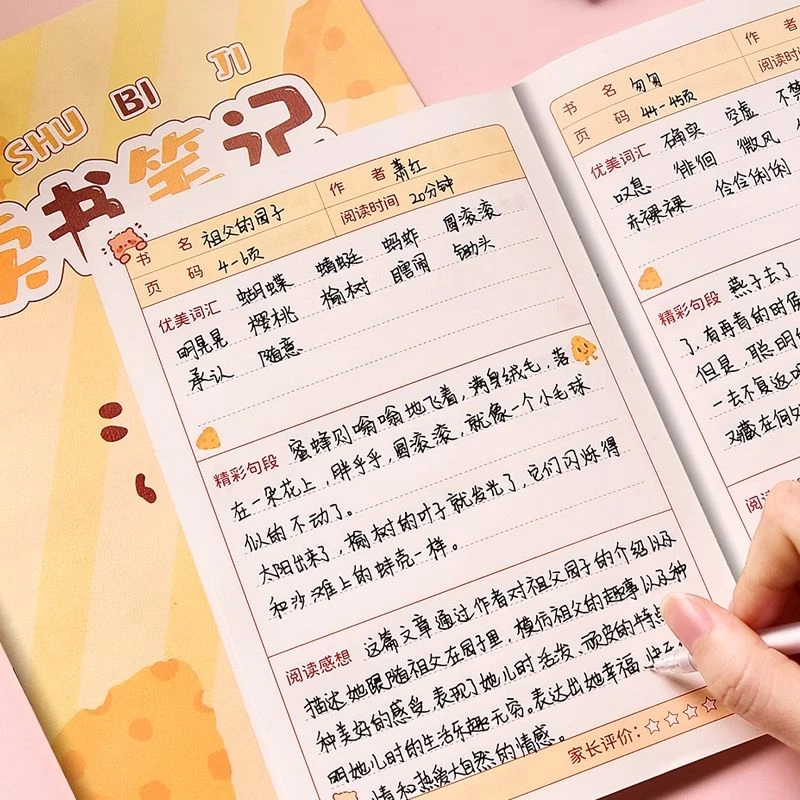 SHU BI JI
读书笔记
书 名 祖父的园子 作 者 萧红
页 码 4-6页 阅读时间 20分钟
优美词汇 蝴蝶 蜻蜓 蚂蚱 圆滚滚
明晃晃 樱桃 榆树 瞎闹 锄头
承认 随意
精彩句段 蜜蜂则嗡嗡地飞着，满身绒毛，落
在一朵花上，胖乎乎，圆滚滚，就像一个小毛球
似的不动了。
太阳出来了，榆树的叶子就发光了，它们闪烁得
和沙滩上的蚌壳一样。
阅读感想 这篇文章通过作者对祖父园子的介绍以及
描述她跟随祖父在园子里，模仿祖父的趣事以及种
种美好的感受，表现了她儿时活发、顽皮的特点
明她儿时的生活乐趣无穷。表达出她幸福
情和热爱大自然的情感。
家长评价：
书 名 匆匆 作 者
页 码 44-45页 阅读时间
优美词汇 确实 空虚 不禁
叹息 徘徊 微风
赤裸裸 伶伶俐俐
精彩句段 燕子去了
了，有再青的时
但是，聪明
一去不复返
又藏在何
阅读